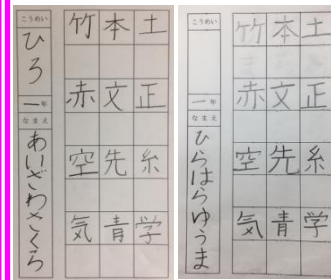 土
正
糸
学
本
文
先
青
竹
赤
空
気
こうめい
ひろ
一年
なまえ
あいざわさくら
土
正
糸
学
本
文
先
青
竹
赤
空
気
こうめい
一年
なまえ
ひらはらゆうま